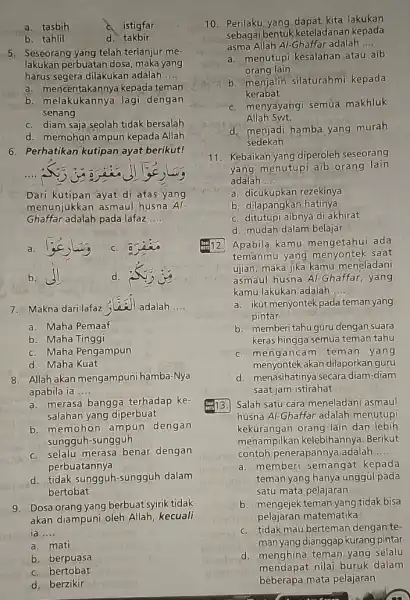 a. tasbih c. istigfar
b. tahlil d. takbir
5. Seseorang yang telah terlanjur me-
lakukan perbuatan dosa, maka yang
harus segera dilakukan adalah ....
a. menceritakannya kepada teman
b. melakukannya lagi dengan
senang
c. diam saja seolah tidak bersalah
d. memohon ampun kepada Allah
6. Perhatikan kutipan ayat berikut!
.... وَسَارِعُوْٓا اِلٰى مَغْفِرَةٍ مِّنْ رَّبِّكُمْ
Dari kutipan ayat di atas yang
menunjukkan asmaul husna Al-
Ghaffar adalah pada lafaz ....
a. وَسَارِعُوْٓا c. مَغْفِرَةٍ
b. اِلٰى d. مِّنْ رَّبِّكُمْ
7. Makna dari lafaz الْغَفَّارُ adalah ....
a. Maha Pemaaf
b. Maha Tinggi
c. Maha Pengampun
d. Maha Kuat
8. Allah akan mengampuni hamba-Nya
apabila ia ....
a. merasa bangga terhadap ke-
salahan yang diperbuat
b. memohon ampun dengan
sungguh-sungguh
c. selalu merasa benar dengan
perbuatannya
d. tidak sungguh-sungguh dalam
bertobat
9. Dosa orang yang berbuat syirik tidak
akan diampuni oleh Allah, kecuali
ia ....
a. mati
b. berpuasa
c. bertobat
d. berzikir
10. Perilaku yang dapat kita lakukan
sebagai bentuk keteladanan kepada
asma Allah Al-Ghaffar adalah ....
a. menutupi kesalahan atau aib
orang lain
b. menjalin silaturahmi kepada
kerabat
c. menyayangi semua makhluk
Allah Swt.
d. menjadi hamba yang murah
sedekah
11. Kebaikan yang diperoleh seseorang
yang menutupi aib orang lain
adalah ....
a. dicukupkan rezekinya
b. dilapangkan hatinya
c. ditutupi aibnya di akhirat
d. mudah dalam belajar
Soal HOTS 12. Apabila kamu mengetahui ada
temanmu yang menyontek saat
ujian, maka jika kamu meneladani
asmaul husna Al-Ghaffar, yang
kamu lakukan adalah ....
a. ikut menyontek pada teman yang
pintar
b. memberi tahu guru dengan suara
keras hingga semua teman tahu
c. mengancam teman yang
menyontek akan dilaporkan guru
d. menasihatinya secara diam-diam
saat jam istirahat
Soal HOTS 13. Salah satu cara meneladani asmaul
husna Al-Ghaffar adalah menutupi
kekurangan orang lain dan lebih
menampilkan kelebihannya. Berikut
contoh penerapannya adalah ....
a. memberi semangat kepada
teman yang hanya unggul pada
satu mata pelajaran
b. mengejek teman yang tidak bisa
pelajaran matematika
c. tidak mau berteman dengan te-
man yang dianggap kurang pintar
d. menghina teman yang selalu
mendapat nilai buruk dalam
beberapa mata pelajaran